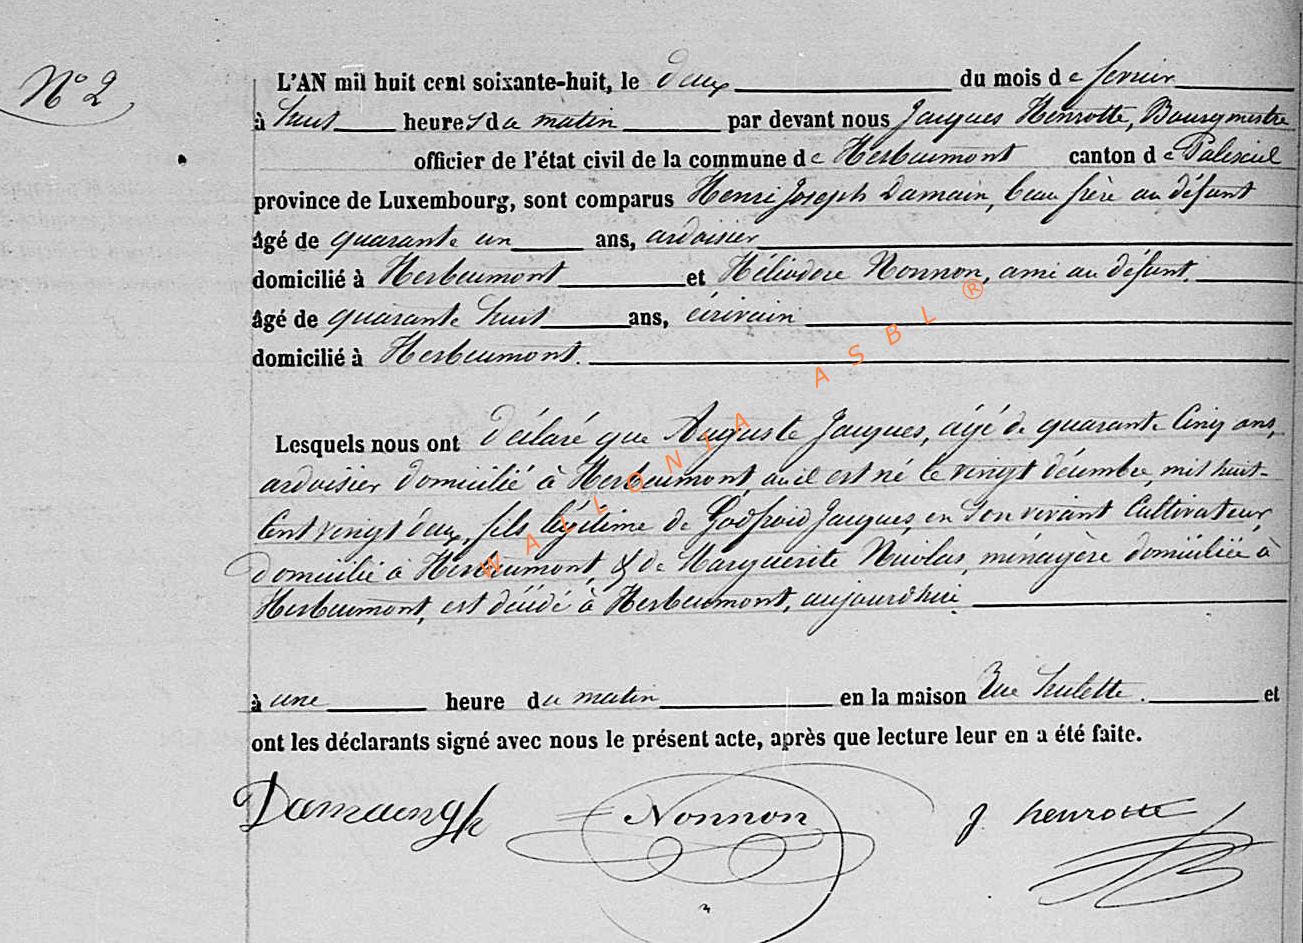 N° 2
L'AN mil huit cent soixante-huit, le deux du mois de fevrier
à huit heures du matin par devant nous Jacques Henrotte, Bourgmestre
officier de l'état civil de la commune de Herbeumont canton de Paliseul
province de Luxembourg, sont comparus Henri Joseph Damain, beau frère au défunt
âgé de quarante un ans, ardoisier
domicilié à Herbeumont et Héliodore Nonnon, ami au défunt.
âgé de quarante huit ans, écrivain
domicilié à Herbeumont.
Lesquels nous ont déclaré que Auguste Jacques, âgé de quarante Cinq ans,
ardoisier domicilié à Herbeumont, où il est né le vingt décembre, mil huit-
Cent vingt deux, fils légitime de Godfroid Jacques, en son vivant Cultivateur,
domicilié à Herbeumont, & de Marguerite Nicolas, ménagère domiciliée à
Herbeumont, est décédé à Herbeumont, aujourd'hui
à une heure du matin en la maison Rue hulette. et
ont les déclarants signé avec nous le présent acte, après que lecture leur en a été faite.
Damain Nonnon J. henrotte
WALLONIA ASBL ®